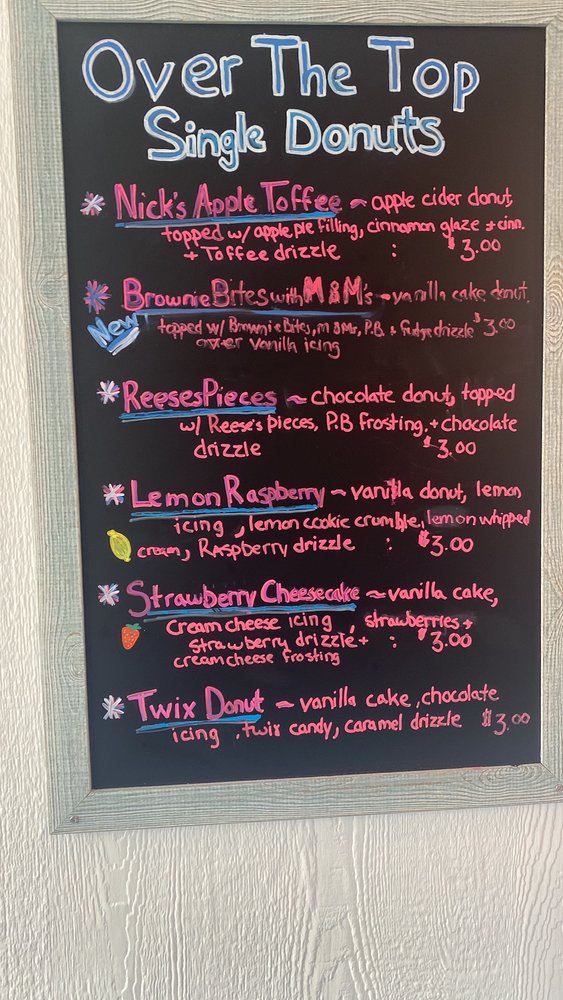 Over The Top
Single Donuts
* Nick's Apple Toffee ~ apple cider donut,
topped w/ apple pie filling, cinnamon glaze + cinn.
+ Toffee drizzle : $3.00
* Brownie Bites with M&M's ~ vanilla cake donut,
New topped w/ Brownie Bites, m&ms, P.B. + fudge drizzle $3.00
over vanilla icing
* Reeses Pieces ~ chocolate donut, topped
w/ Reese's pieces, P.B frosting, + chocolate
drizzle $3.00
* Lemon Raspberry ~ vanilla donut, lemon
icing, lemon cookie crumble, lemon whipped
cream, Raspberry drizzle : $3.00
* Strawberry Cheesecake ~ vanilla cake,
cream cheese icing, strawberries +
strawberry drizzle + : $3.00
cream cheese frosting
* Twix Donut ~ vanilla cake, chocolate
icing, twix candy, caramel drizzle $3.00